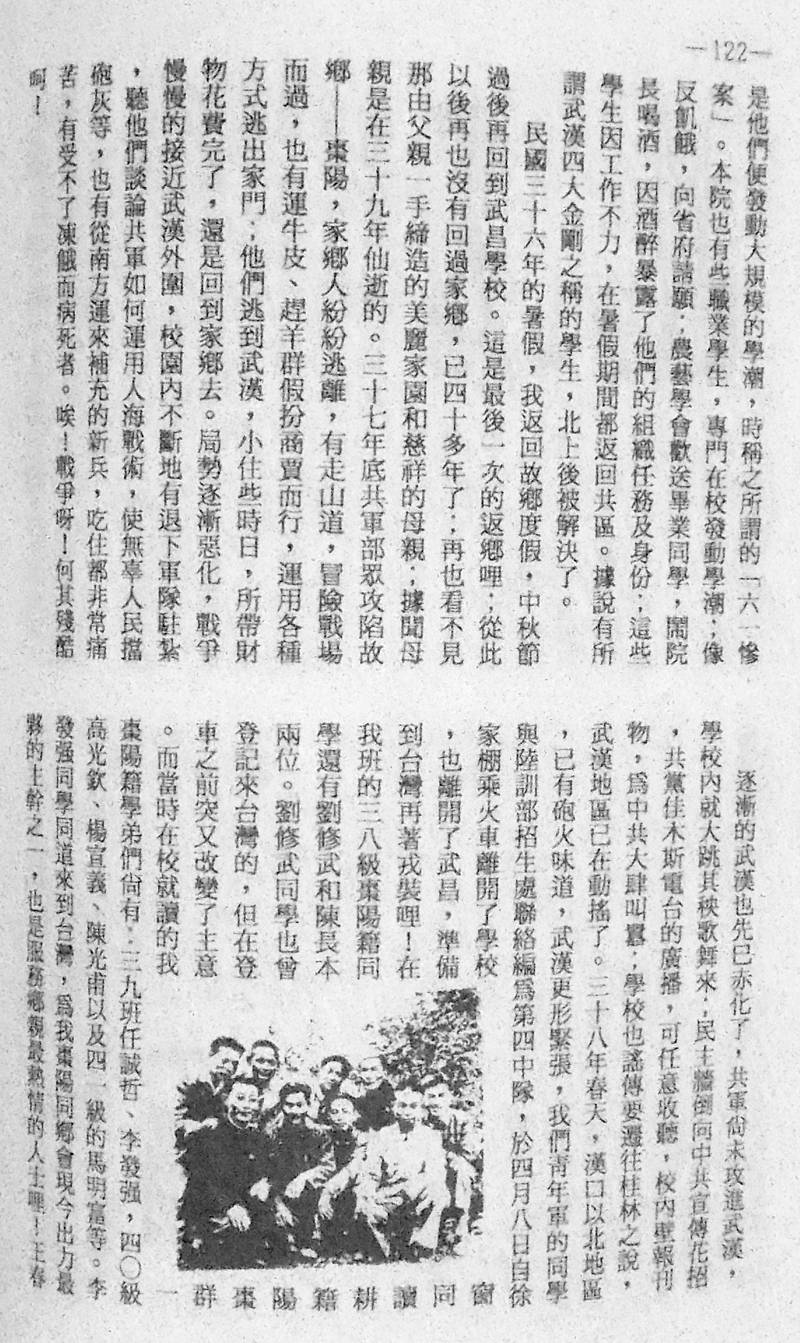 —122—
是他們便發動大規模的學潮，時稱之所謂的「六一慘
案」。本院也有些職業學生，專門在校發動學潮；像
反飢餓，向省府請願；農藝學會歡送畢業同學，鬧院
長喝酒，因酒醉暴露了他們的組織任務及身份；這些
學生因工作不力，在暑假期間都返回共區。據說有所
謂武漢四大金剛之稱的學生，北上後被解決了。
民國三十六年的暑假，我返回故鄉度假，中秋節
過後再回到武昌學校。這是最後一次的返鄉哩；從此
以後再也沒有回過家鄉，已四十多年了；再也看不見
那由父親一手締造的美麗家園和慈祥的母親；據聞母
親是在三十九年仙逝的。三十七年底共軍部眾攻陷故
鄉——棗陽，家鄉人紛紛逃離，有走山道，冒險戰場
而過，也有運牛皮、趕羊群假扮商賈而行，運用各種
方式逃出家門；他們逃到武漢，小住些時日，所帶財
物花費完了，還是回到家鄉去。局勢逐漸惡化，戰爭
慢慢的接近武漢外圍，校園內不斷地有退下軍隊駐紮
，聽他們談論共軍如何運用人海戰術，使無辜人民擋
砲灰等，也有從南方運來補充的新兵，吃住都非常痛
苦，有受不了凍餓而病死者。唉！戰爭呀！何其殘酷
啊！
逐漸的武漢也先已赤化了，共軍尚未攻進武漢，
學校內就大跳其秧歌舞來；民主牆倒向中共宣傳花招
，共黨佳木斯電台的廣播，可任意收聽，校內壁報刊
物，為中共大肆叫囂；學校也謠傳要遷往桂林之說，
武漢地區已在動搖了。三十八年春天，漢口以北地區
，已有砲火味道，武漢更形緊張，我們青年軍的同學
與陸訓部招生處聯絡編為第四中隊，於四月八日自徐
家棚乘火車離開了學校
，也離開了武昌，準備
到台灣再著戎裝哩！在
我班的三八級棗陽籍同
學還有劉修武和陳長本
兩位。劉修武同學也曾
登記來台灣的，但在登
車之前突又改變了主意
。而當時在校就讀的我
棗陽籍學弟們尚有：三九班任誠哲、李發强，四〇級
高光欽、楊宣義、陳光甫以及四一級的馬明富等。李
發强同學同道來到台灣，為我棗陽同鄉會現今出力最
夥的主幹之一，也是服務鄉親最熱情的人士哩！王春
一群棗陽籍耕讀同窗